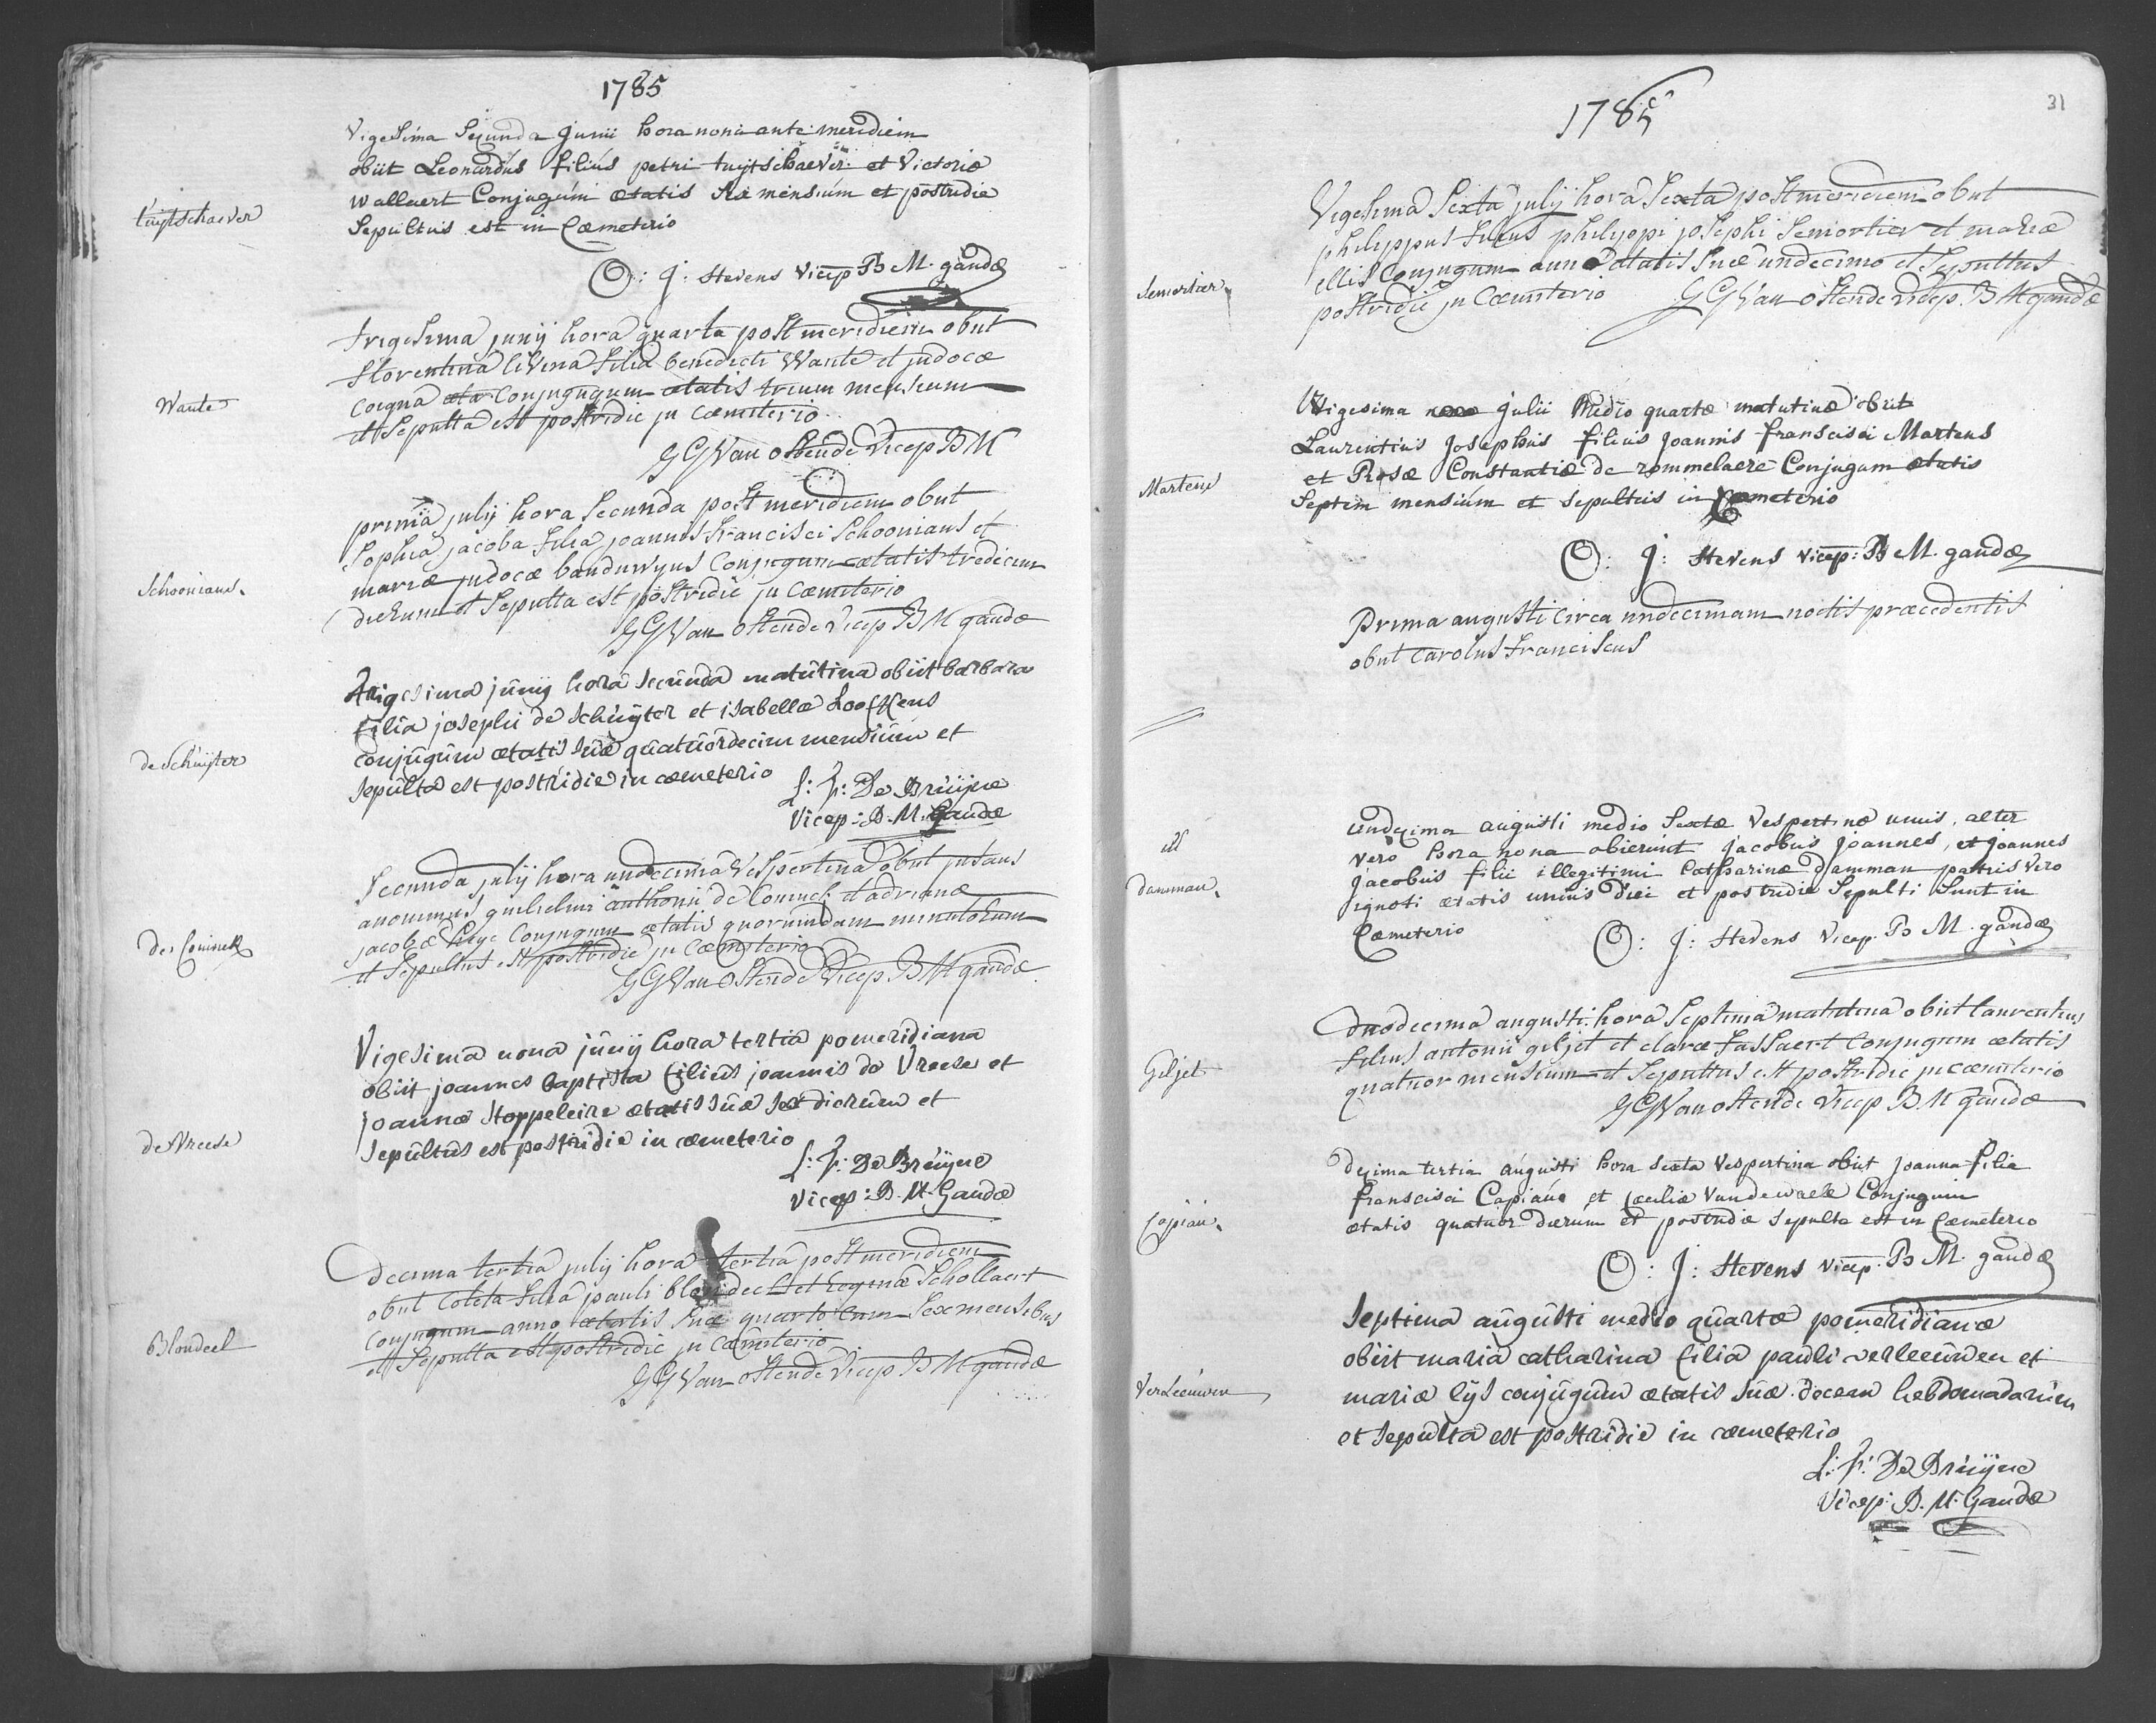 1785
Vigesima Secunda Junii hora nona ante meridiem
obiit Leonardus filius petri tuytschaever et Victoriæ
wallaert Conjugum ætatis sex mensium et postridie
Sepultus est in Cœmeterio
tuytschaever
O: J: Stevens vicep B M. gandæ
trigesima junij hora quarta post meridiem obiit
florentina livina filia benedicti Wante et judocæ
coigna æta Conjugugum ætatis trium mensium
et Sepulta est postridie in Cœmiterio
Wante
G G Van Ostende Vicep B M
prima julij hora Secunda post meridiem obiit
Sophia jacoba filia joannis francisci Schoonians et
mariæ judocæ banduwyns Conjugum ætatis tredecim
dierum et Sepulta est postridie in Cœmiterio
Schoonians.
G G Van Ostende Vicep B M gandæ
trigesima junij hora Secunda matutina obiit barbara
filia josephi de Schuÿter et isabellæ Looffkens
Conjugum ætatis suæ quatuordecim mensium et
Sepulta est postridie in cœmeterio
de Schuÿter
L: F: De Bruÿne
Vicep: B. M. Gandæ
Secunda julij hora undecima Vespertina obiit infans
anonimus guilielmi anthonii de Coninck et adrianæ
jacobæ huge Conjugum ætatis quorumdam minutorum
et Sepultus est postridie in Cœmiterio
de Coninck
G G Van Ostende Vicep B M gandæ
Vigesima nona junij hora tertia pomeridiana
obiit joannes baptista filius joannis de Vreese et
joannæ Stoppeleire ætatis suæ sex dierum et
Sepultus est postridie in cœmeterio
de Vreese
L: F: De Bruÿne
Vicep: B. M. Gandæ
Decima tertia julij hora tertia post meridiem
obiit Coleta filia pauli blondeel et reginæ Schollaert
Conjugum anno ætatis suæ quarto cum Sex mensibus
et Sepulta est postridie in Cœmiterio
Blondeel
G G Van Ostende Vicep B M gandæ
1785
31
Vigesima Sexta julij hora Sexta post meridiem obiit
philippus filius philippi josephi Semortier et mariæ
ellis Conjugum anno ætatis suæ undecimo et Sepultus
postridie in Cœmiterio G G Van Ostende Vicep. B M gandæ
Semortier
Vigesima Julii Medio quartæ matutinæ obiit
Laurentius Josephus filius Joannis franscisci Martens
et Rosæ Constantiæ de rommelaere Conjugum ætatis
Septem mensium et Sepultus in Cœmeterio
Martens
O: J: Stevens vicep: B M. gandæ
Prima augusti Circa undecimam noctis præcedentis
obiit Carolus franciscus
undecima augusti medio Sextæ Vespertinæ unus, alter
vero hora nona obierunt Jacobus Joannes, et Joannes
Jacobus filii illegitimi Catharinæ damman patris vero
ignoti ætatis unius diei et postridie Sepulti Sunt in
Cœmeterio
ill
damman.
O: J: Stevens Vicep. B M. gandæ
duodecima augusti hora Septima matutina obiit laurentius
filius antonii giljet et claræ fassaert Conjugum ætatis
quatuor mensium et Sepultus est postridie in cœmiterio
Giljet
G G Van Ostende Vicep B M gandæ
decima tertia augusti hora Sexta Vespertina obiit Joanna filia
franscisci Capiau et Cæciliæ Vandewaele Conjugum
ætatis quatuor dierum et postridie Sepulta est in Cœmeterio
Capiau.
O: J: Stevens vicep. B M. gandæ
Septima augusti medio quartæ pomeridianæ
obiit maria catharina filia pauli verleeuwen et
mariæ lijs conjugum ætatis suæ decem hebdomadarum
et Sepulta est postridie in cœmeterio
Verleeuwen
L: F: De Bruÿne
Vicep: B. M. Gandæ